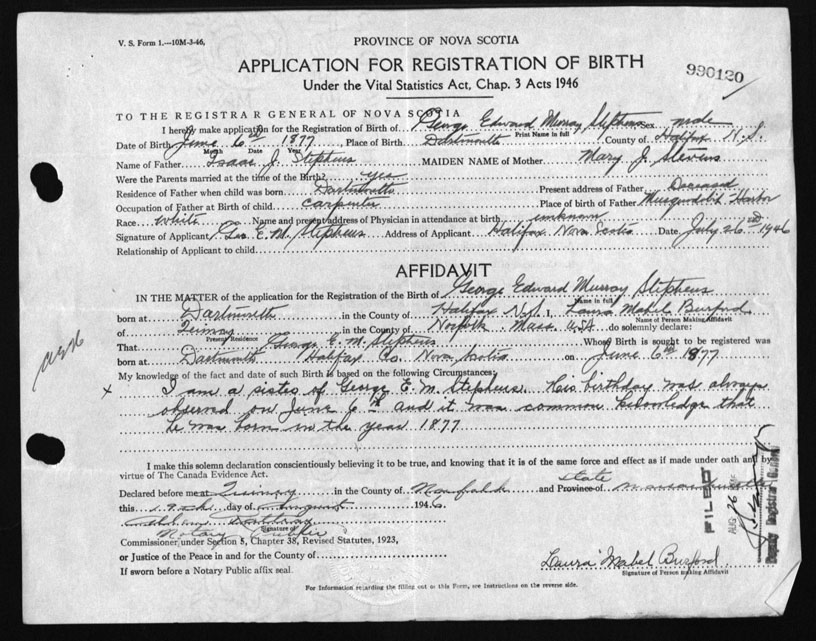 V. S. Form 1.—10M-3-46,
PROVINCE OF NOVA SCOTIA
APPLICATION FOR REGISTRATION OF BIRTH
990120
Under the Vital Statistics Act, Chap. 3 Acts 1946
TO THE REGISTRAR GENERAL OF NOVA SCOTIA
I hereby make application for the Registration of Birth of George Edward Murray Stephens Sex male
Print Name in full
Date of Birth June 6 1877 Place of Birth Dartmouth County of Halifax N.S.
Month Date Year
Name of Father Isaac J. Stephens MAIDEN NAME of Mother Mary J. Stevens
Were the Parents married at the time of the Birth? yes
Residence of Father when child was born Dartmouth Present address of Father Deceased
Occupation of Father at Birth of child carpenter Place of birth of Father Musquodobit Harbor
Race White Name and present address of Physician in attendance at birth unknown
Signature of Applicant Geo. E. M. Stephens Address of Applicant Halifax Nova Scotia Date July 26 1946
Relationship of Applicant to child
AFFIDAVIT
IN THE MATTER of the application for the Registration of Birth of George Edward Murray Stephens
Name in full
born at Dartmouth in the County of Halifax N.S. I, Laura Mabel Burford
Name of Person Making Affidavit
of Quincy in the County of Norfolk Mass. USA do solemnly declare:
Present Residence
That George E. M. Stephens Whose Birth is sought to be registered was
born at Dartmouth Halifax Co. Nova Scotia on June 6th 1877
My knowledge of the fact and date of such Birth is based on the following Circumstances:
x I am a sister of George E. M Stephens. His birthday was always
observed on June 6th and it was common knowledge that
he was born in the year 1877
I make this solemn declaration conscientiously believing it to be true, and knowing that it is of the same force and effect as if made under oath and by
virtue of The Canada Evidence Act.
state
Declared before me at Quincy in the County of Norfolk and Province of
this day of August 1946
Signature of
Notary Public
Commissioner under Section 5, Chapter 38, Revised Statutes, 1923,
or Justice of the Peace in and for the County of
If sworn before a Notary Public affix seal.
Laura Mabel Burford
Signature of Person making Affidavit
For Information regarding the filling out of this Form, see Instructions on the reverse side.
FILED
AUG 26
Deputy Registrar General